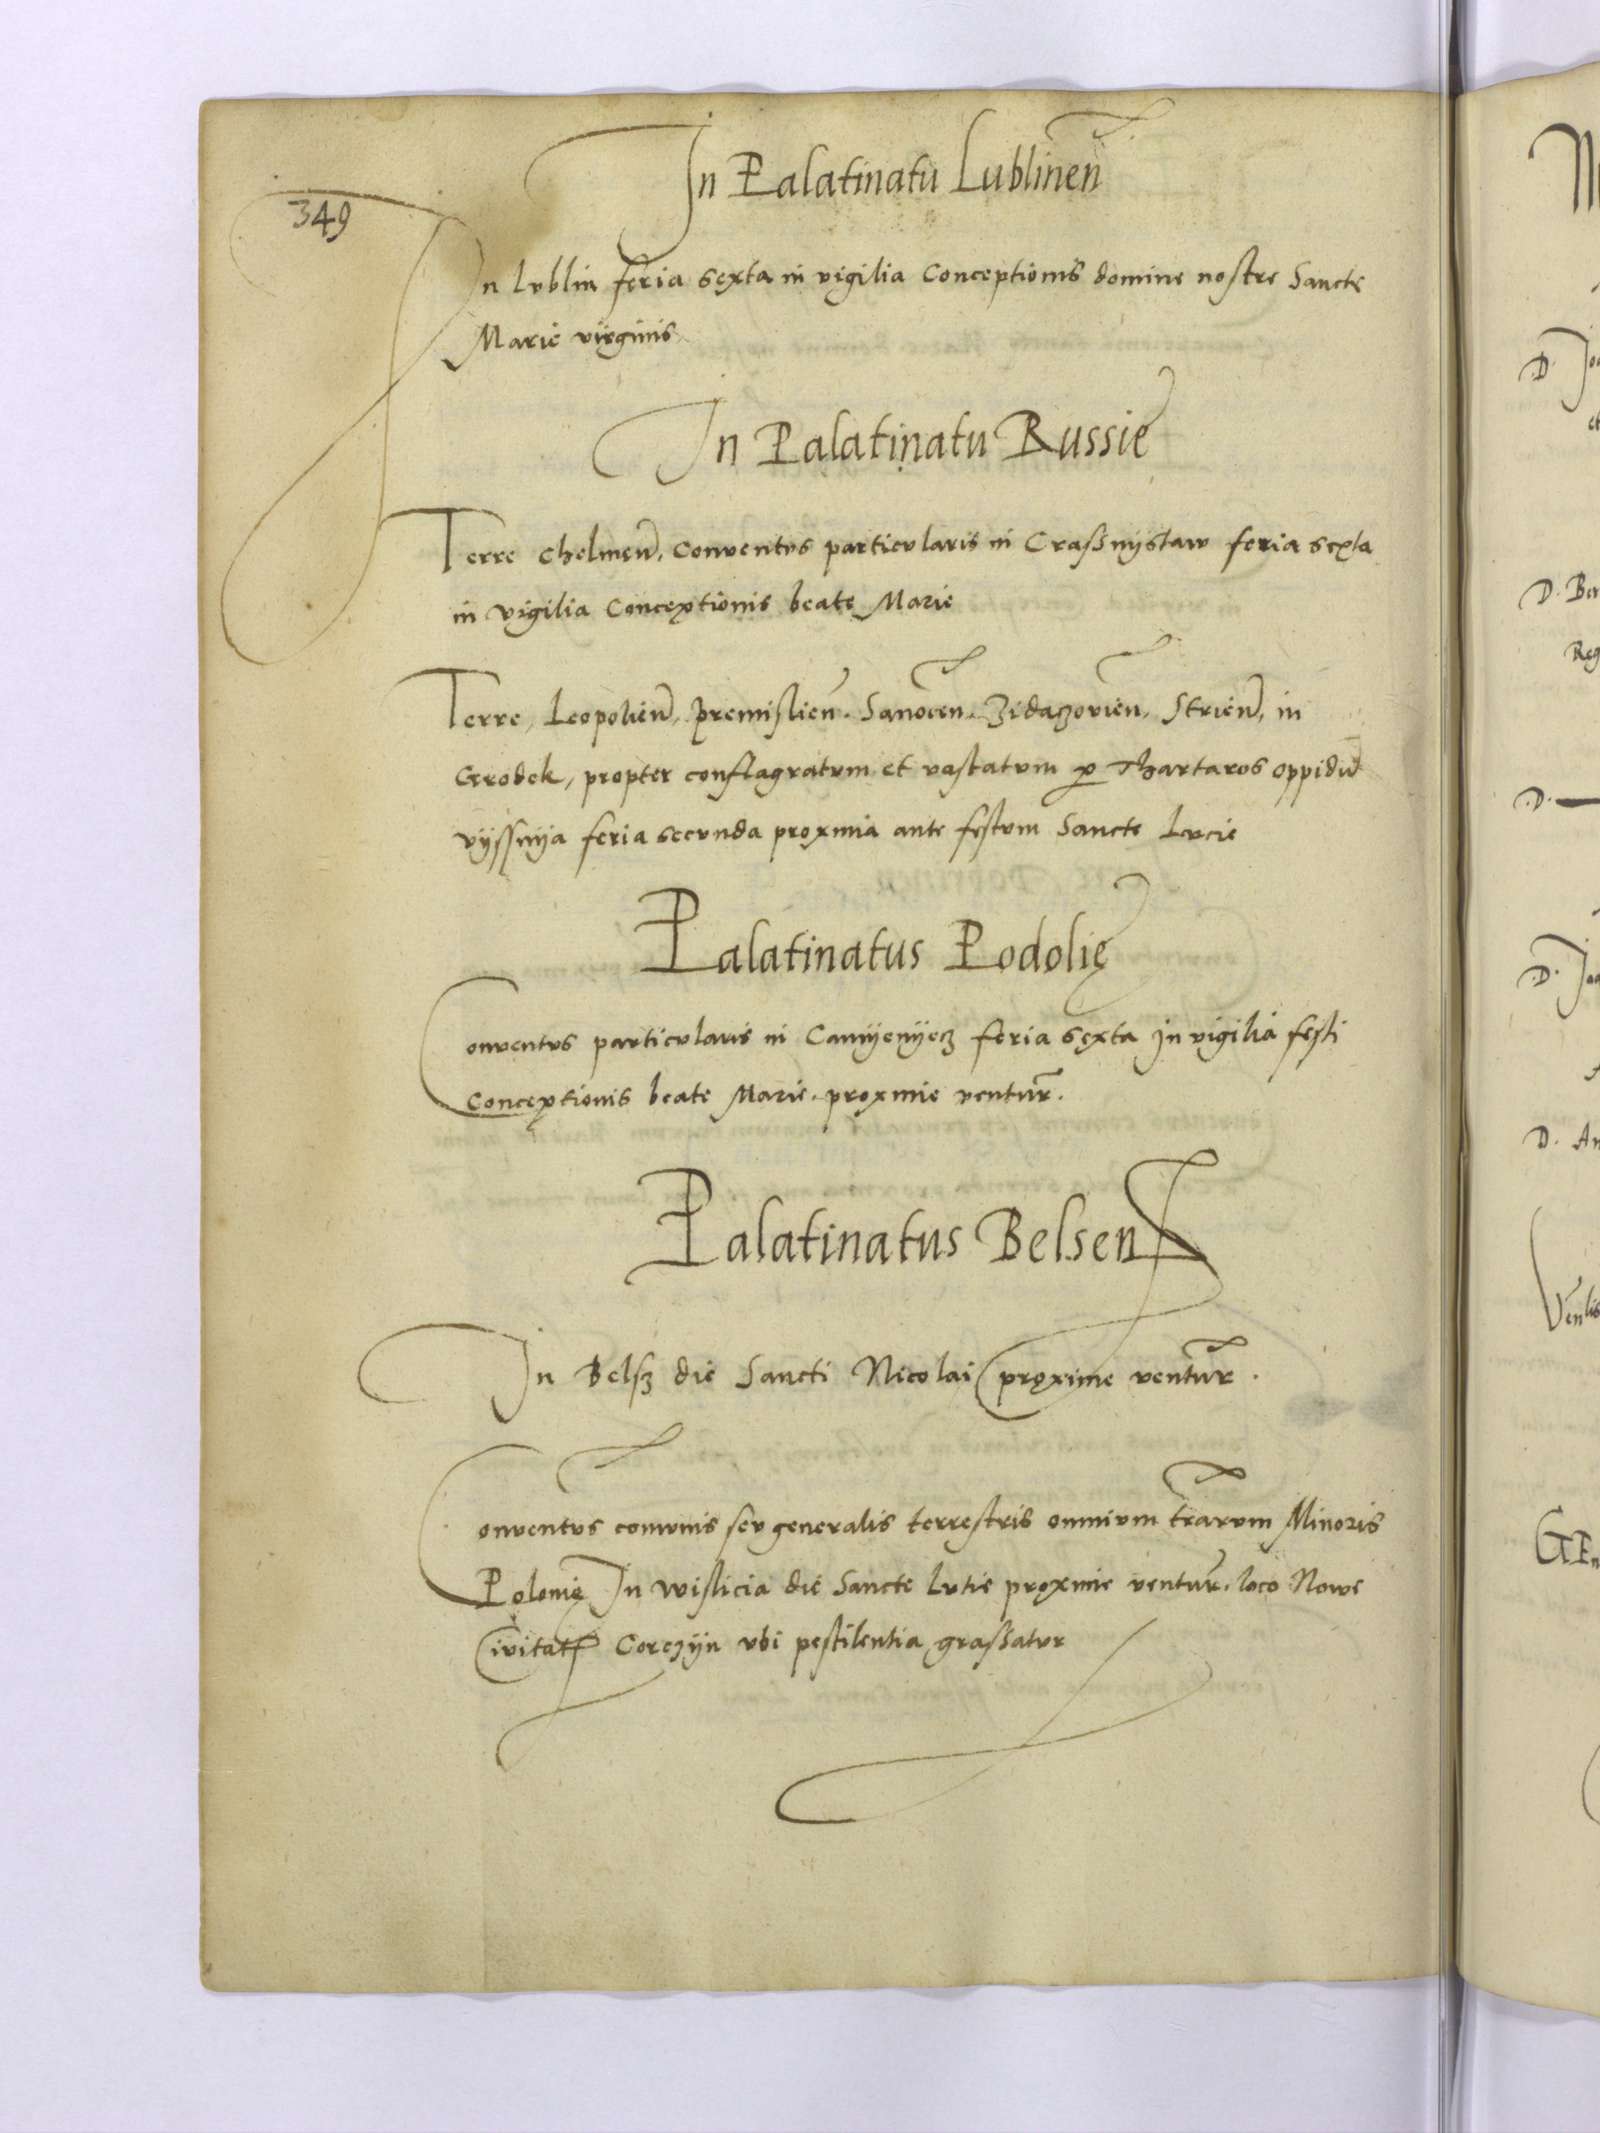 In Palatinatu Lublinen
349
In lublin feria sexta in vigilia Conceptionis domine nostre Sancte
Marie virginis
In Palatinatu Russie
Terre Chelmen, Conventus particularis in Crassnystaw feria sexta
in vigilia Conceptionis beate Marie
Terre, Leopolien, Premislien. Sanocen. Zidaczovien, Strien, in
Grodek, propter conflagratum et vastatum p Thartaros oppidu
vyssnya feria secunda proxima ante festum Sancte Lucie
Palatinatus Podolię
Conventus particularis in Camyenyecz feria sexta in vigilia festi
Conceptionis beate Marie. proxime ventur.
Palatinatus Belsen
In Belsz die Sancti Nicolai proxime ventur.
Conventus comunis seu generalis terrestris omnium trarum Minoris
Polonię In wislicia die Sancte Lutie proxime ventur. loco Nowe
Civitat Corczyn ubi pestilentia grassatur
D.
D. Be
Reg
D.
D.
D. An